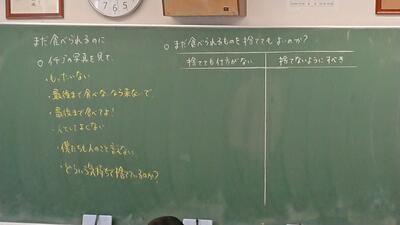 まだ食べられるのに
○イチゴの写真を見て、
・もったいない
・最後まで食べないなら来ないで
・最後まで食べてよ!
・人としてよくない
・僕たちも人のこと言えない
・どういう気持ちで捨てているのか?
○まだ食べられるものを捨ててもよいのか?
捨てても仕方がない
捨てないようにすべき
7 6 5